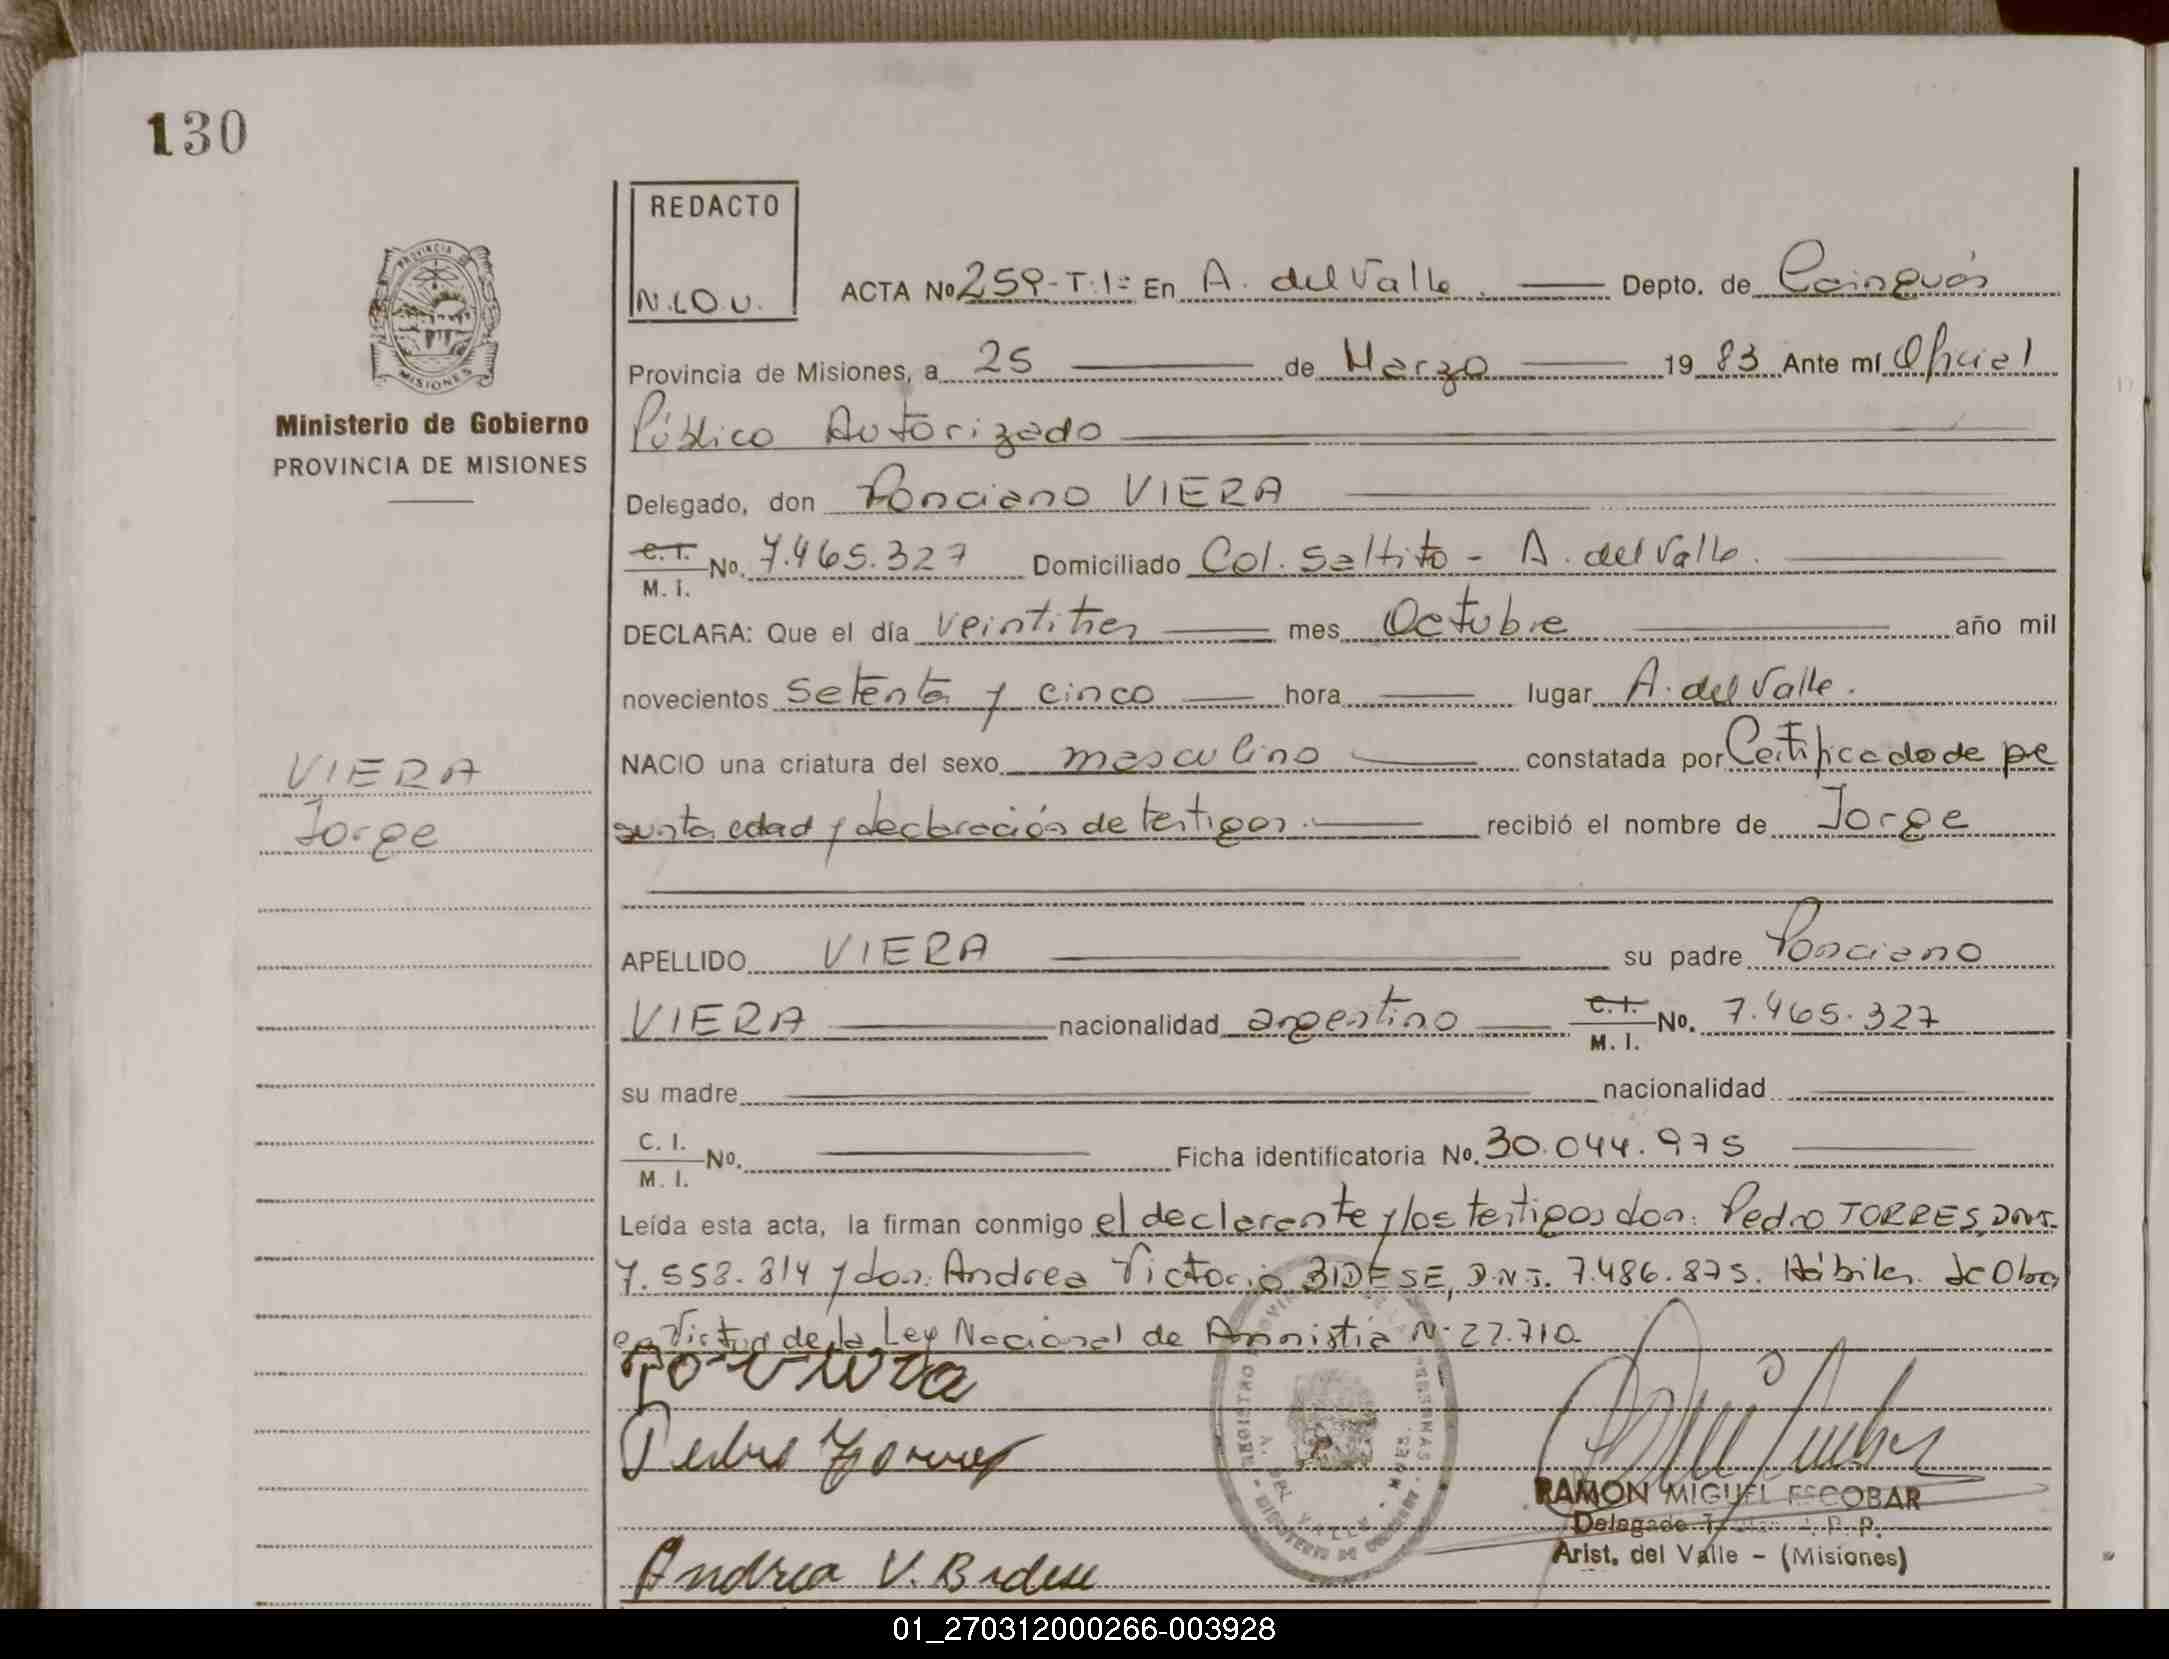 130
REDACTO
N.LO.U.
ACTA No 259-T:1= En A. del Valle. Depto. de Cainguás
Provincia de Misiones, a 25 de Marzo 1983 Ante mí Oficial
Público Autorizado
PROVINCIA DE
MISIONES
Ministerio de Gobierno
PROVINCIA DE MISIONES
Delegado, don Ponciano VIERA
C. I.
M. I. No. 7.465.327 Domiciliado Col. Saltito - A. del Valle.
DECLARA: Que el día veintitres mes Octubre año mil
novecientos setenta y cinco hora lugar A. del Valle.
VIERA
Jorge
NACIO una criatura del sexo masculino constatada por Certificado de pre
sunta edad y declaración de testigos. recibió el nombre de Jorge
APELLIDO VIERA su padre Ponciano
VIERA nacionalidad argentino C. I. M. I. No. 7.465.327
su madre nacionalidad
C. I.
M. I. No. Ficha identificatoria No. 30.044.975
Leída esta acta, la firman conmigo el declarante y los testigos don: Pedro TORRES, DNI.
7.558.814 y don: Andrea Victorio BIDESE, D.N.I. 7.486.875. Hábiles. Se Obra
en Virtud de la Ley Nacional de Amnistia N° 22.710.
Po Viera
Pedro Torres
Andrea V. Bidese
RAMON MIGUEL ESCOBAR
Delegado P. P.
Arist. del Valle - (Misiones)
01_270312000266-003928